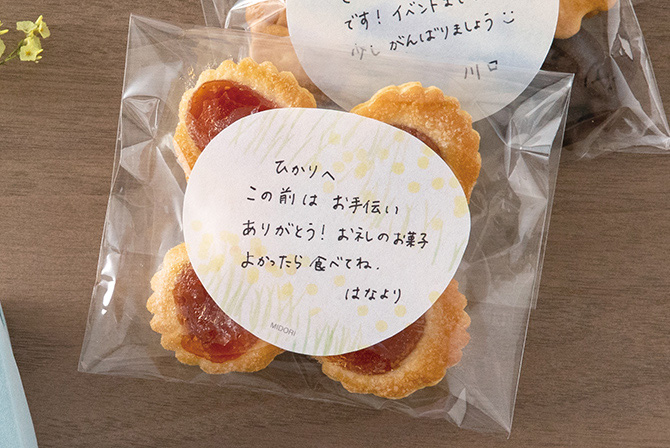 です！イベントまで
少しがんばりましょう
川口
ひかりへ
この前は お手伝い
ありがとう！お礼のお菓子
よかったら 食べてね.
はなより
MIDORI